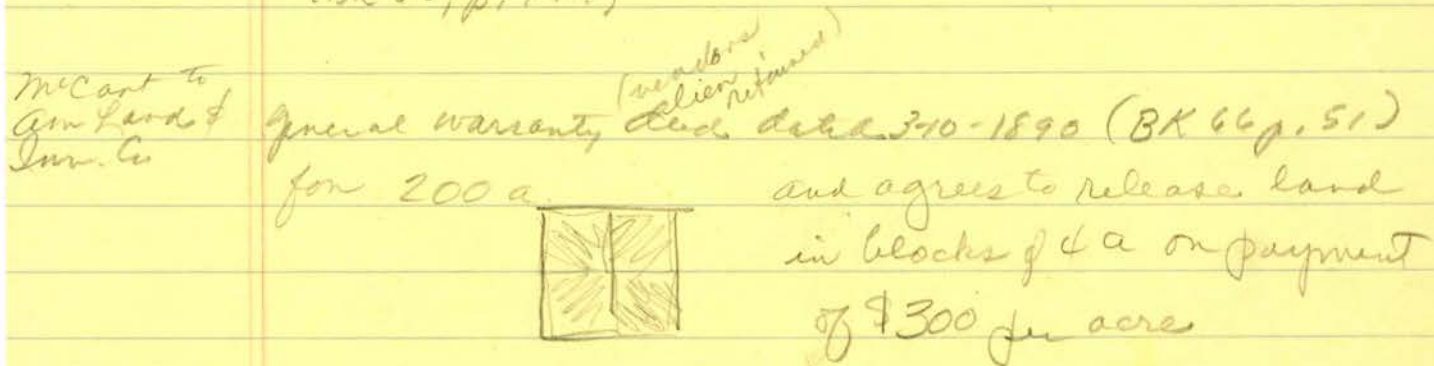 McCart to
Am Land &
Inv. Co
(vendors
lien
retained)
General warranty deed dated 3-10-1890 (BK 66 p. 51)
for 200 a.
and agrees to release land
in blocks of 4 a on payment
of $300 per acre